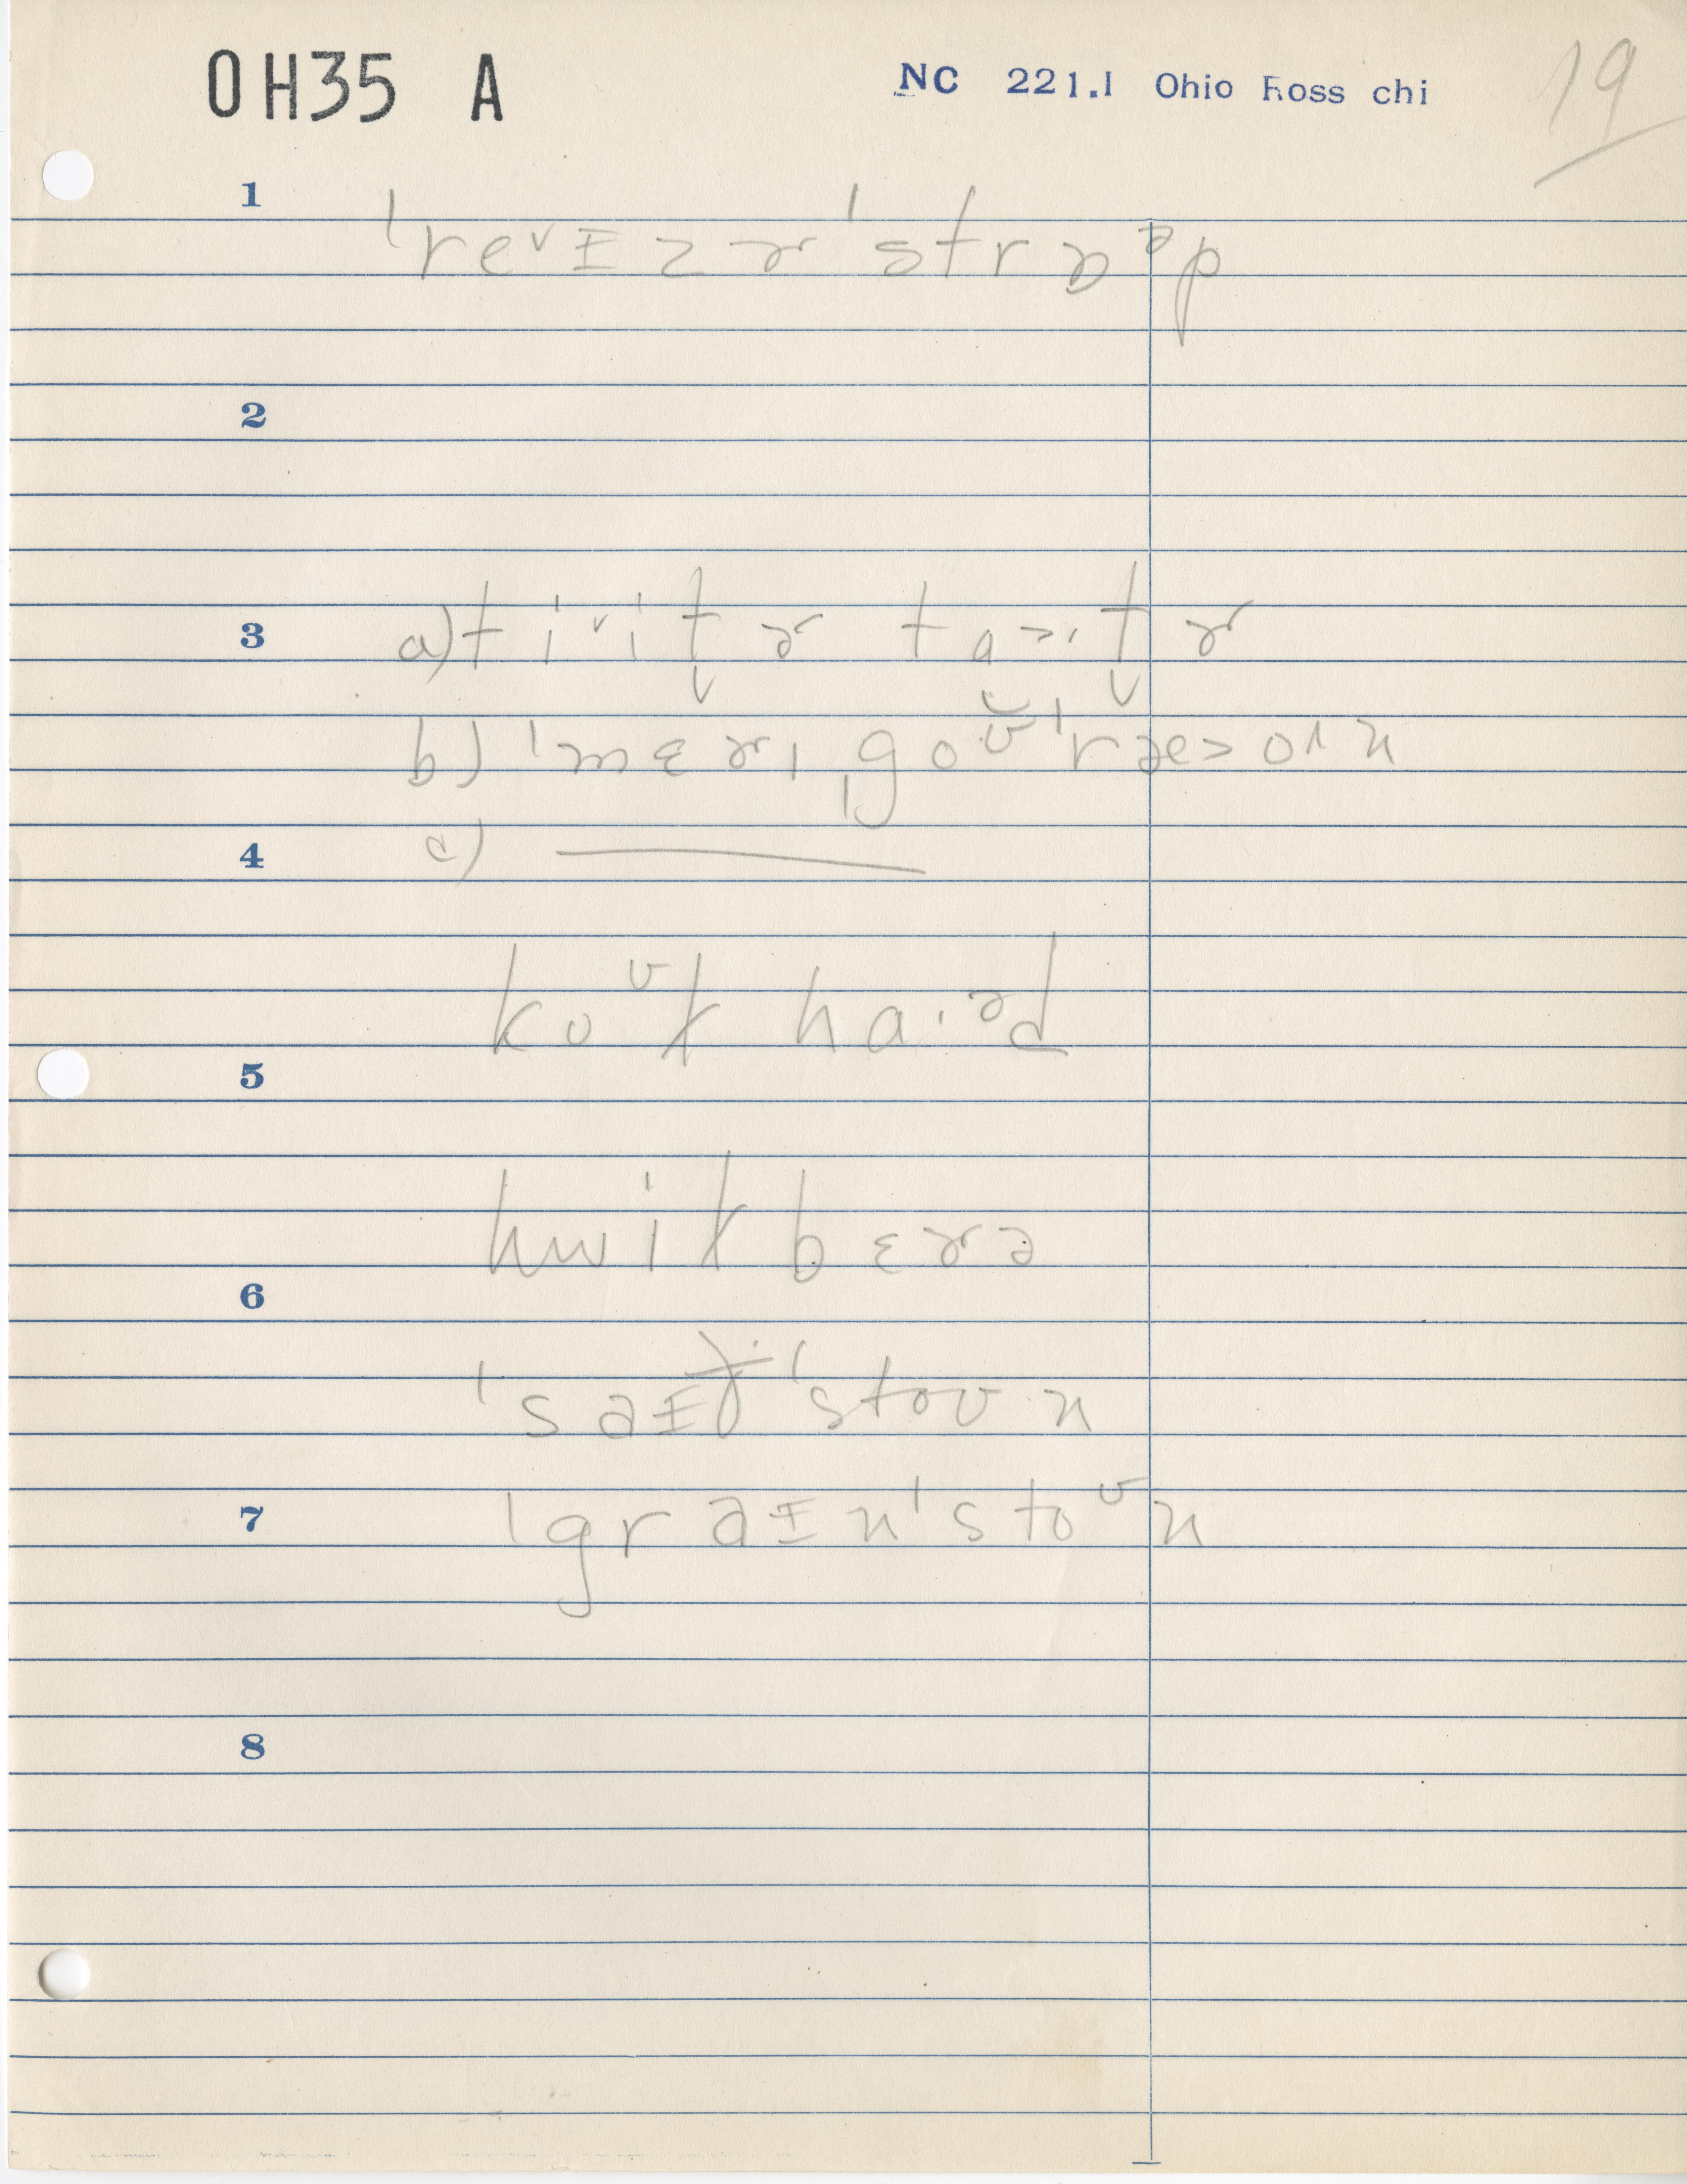 OH35 A
NC 221.1 Ohio Ross chi
19
1
ˈreᵛɪzɚˈstrɒᵊp
2
3
a) tiᵛit̬ɚ ta>ˑt̬ɚ
b) ˈmɛɚiˌgoʊ̆ˈræ>oʌn
4
c) ———
koᵘk haˑᵊd
5
hwiˈk bɛɚə
6
ˈsaɪðˈstoʊn
7
ˈgraɪnˈstoᵘn
8